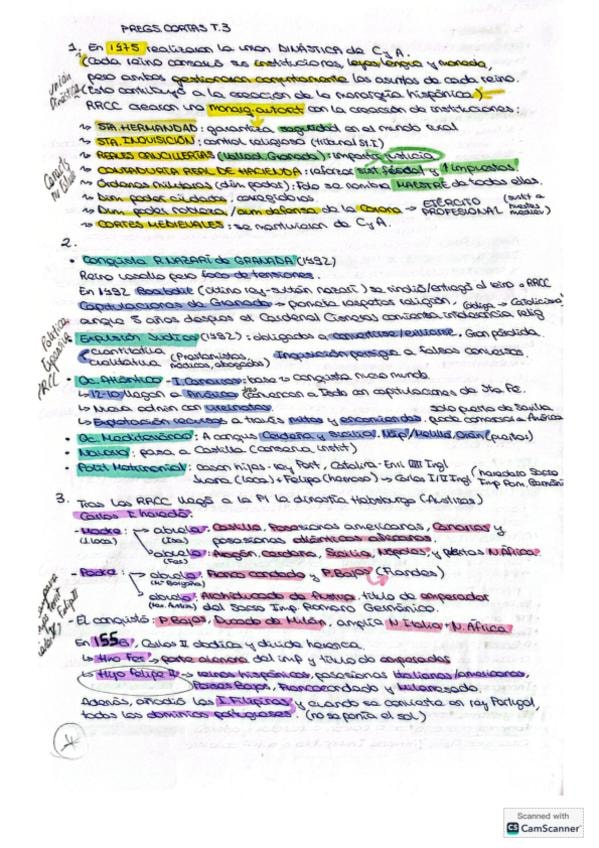 PREGS CORTAS T.3
1. En 1975 realizaron la unión DINÁSTICA de C y A.
(Cada reino conservó sus instituciones, leyes, lengua y moneda,
pero ambos gestionaron conjuntamente los asuntos de cada reino.
(Esto contribuyó a la creación de la monarquía hispánica)
Unión Dinástica
RRCC crearon una monarq. autorit con la creación de instituciones:
Caracts
↳ STA. HERMANDAD: garantiza seguridad en el mundo rural
↳ STA. INQUISICIÓN: control religioso (tribunal St. I)
↳ REALES CANCILLERÍAS (Vallad, Granada): impartir justicia
↳ CONTADURÍA REAL DE HACIENDA: reforzar sist. feudal y ↑ impuestos.
↳ Órdenes militares (dism poder): Fdo se nombra MAESTRE de todas ellas.
↳ Dism. poder ciudades, corregidores
↳ Dism. poder nobleza / aum defensa de la Corona → EJÉRCITO PROFESIONAL
↳ CORTES MEDIEVALES: se mantuvieron de C y A.
2.
• Conquista R. NAZARÍ de GRANADA (1492)
Reino vasallo pero foco de tensiones.
En 1492 Boabdil (último rey-sultán nazarí) se rindió/entregó al reino a RRCC
Capitulaciones de Granada → ponía respetar religión,
aunque 8 años después el Cardenal Cisneros comienza intolerancia relig
Política RRCC
• Expulsión Judíos (1492): obligados a convertirse/exiliarse. Gran pérdida.
cuantitativa
cualitativa (Prestamistas, médicos, abogados) Inquisición persigue a falsos conversos.
• Oc. Atlántico - I. Canarias: base → conquista nuevo mundo.
↳ 12-10 llegan a América (convencen a Todo con capitulaciones de Sta Fe.
↳ Nueva admin con virreinatos. solo puerto de Sevilla
↳ Explotación recursos a través mitas y encomiendas. puede comerciar a América
• Oc. Mediterráneo: A cargo Cerdeña y Sicilia. Náp/Melilla, Orán (puertos)
• Navarra: pasa a Castilla (conserva instit)
• Polít Matrimonial: casan hijas - rey Port, Catalina - Enri VIII Ingl
Juana (loca) + Felipe (hermoso) → Carlos I
3. Tras los RRCC llegó a la PI la dinastía Habsburgo (Austrias)
Carlos I heredó:
- Madre: (J. loca) → abuela: (Isa) Castilla, Posesiones americanas, Canarias y
posesiones atlánticas africanas.
abuelo: (Fer) Aragón, Cerdeña, Sicilia, Nápoles y plazas N. África
- Padre: → abuela: (Mª Borgoña) Franco condado y P. Bajos (Flandes)
abuelo: (Max. Austria) Archiducado de Austria, título de emperador
del Sacro Imp. Romano Germánico.
- Él conquistó: P. Bajos, Ducado de Milán, amplía N. Italia + N. África
En 1556, Carlos I abdica y divide herencia.
↳ Hno Fer → parte alemana del imp y título de emperador
↳ Hijo Felipe II → reinos hispánicos, posesiones italianas/americanas,
Países Bajos, Francocondado y Milanesado.
Además, añadió las I. Filipinas y cuando se convierte en rey Portugal,
todos los dominios portugueses. (no se ponía el sol)
Scanned with
CS CamScanner